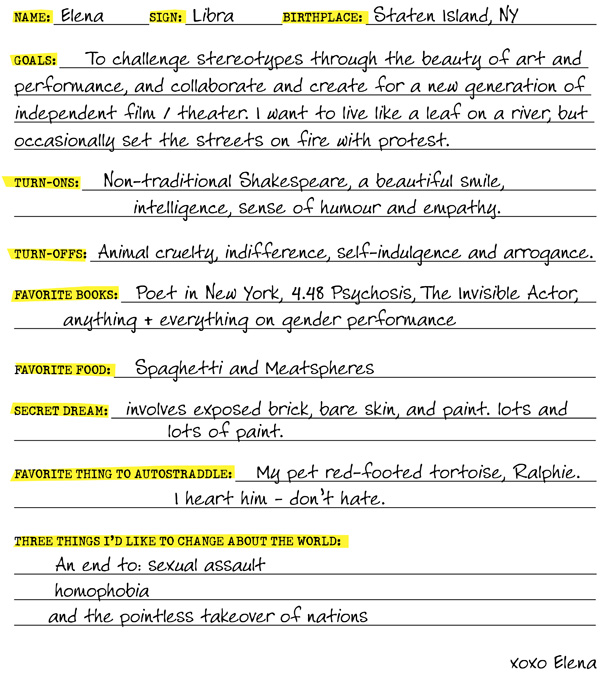 NAME: Elena SIGN: Libra BIRTHPLACE: Staten Island, NY
GOALS: To challenge stereotypes through the beauty of art and
performance, and collaborate and create for a new generation of
independent film / theater. I want to live like a leaf on a river, but
occasionally set the streets on fire with protest.
TURN-ONS: Non-traditional Shakespeare, a beautiful smile,
intelligence, sense of humour and empathy.
TURN-OFFS: Animal cruelty, indifference, self-indulgence and arrogance.
FAVORITE BOOKS: Poet in New York, 4.48 Psychosis, The Invisible Actor,
anything + everything on gender performance
FAVORITE FOOD: Spaghetti and Meatspheres
SECRET DREAM: involves exposed brick, bare skin, and paint. lots and
lots of paint.
FAVORITE THING TO AUTOSTRADDLE: My pet red-footed tortoise, Ralphie.
I heart him - don't hate.
THREE THINGS I'D LIKE TO CHANGE ABOUT THE WORLD:
An end to: sexual assault
homophobia
and the pointless takeover of nations
xoxo Elena